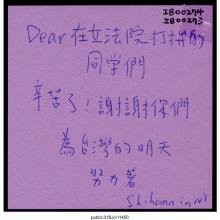 IB00274
IB00273
Dear 在立法院打拼的
同學們
辛苦了！謝謝你們
為台灣的明天
努力著
Shihann in NY
public.318.io/11450